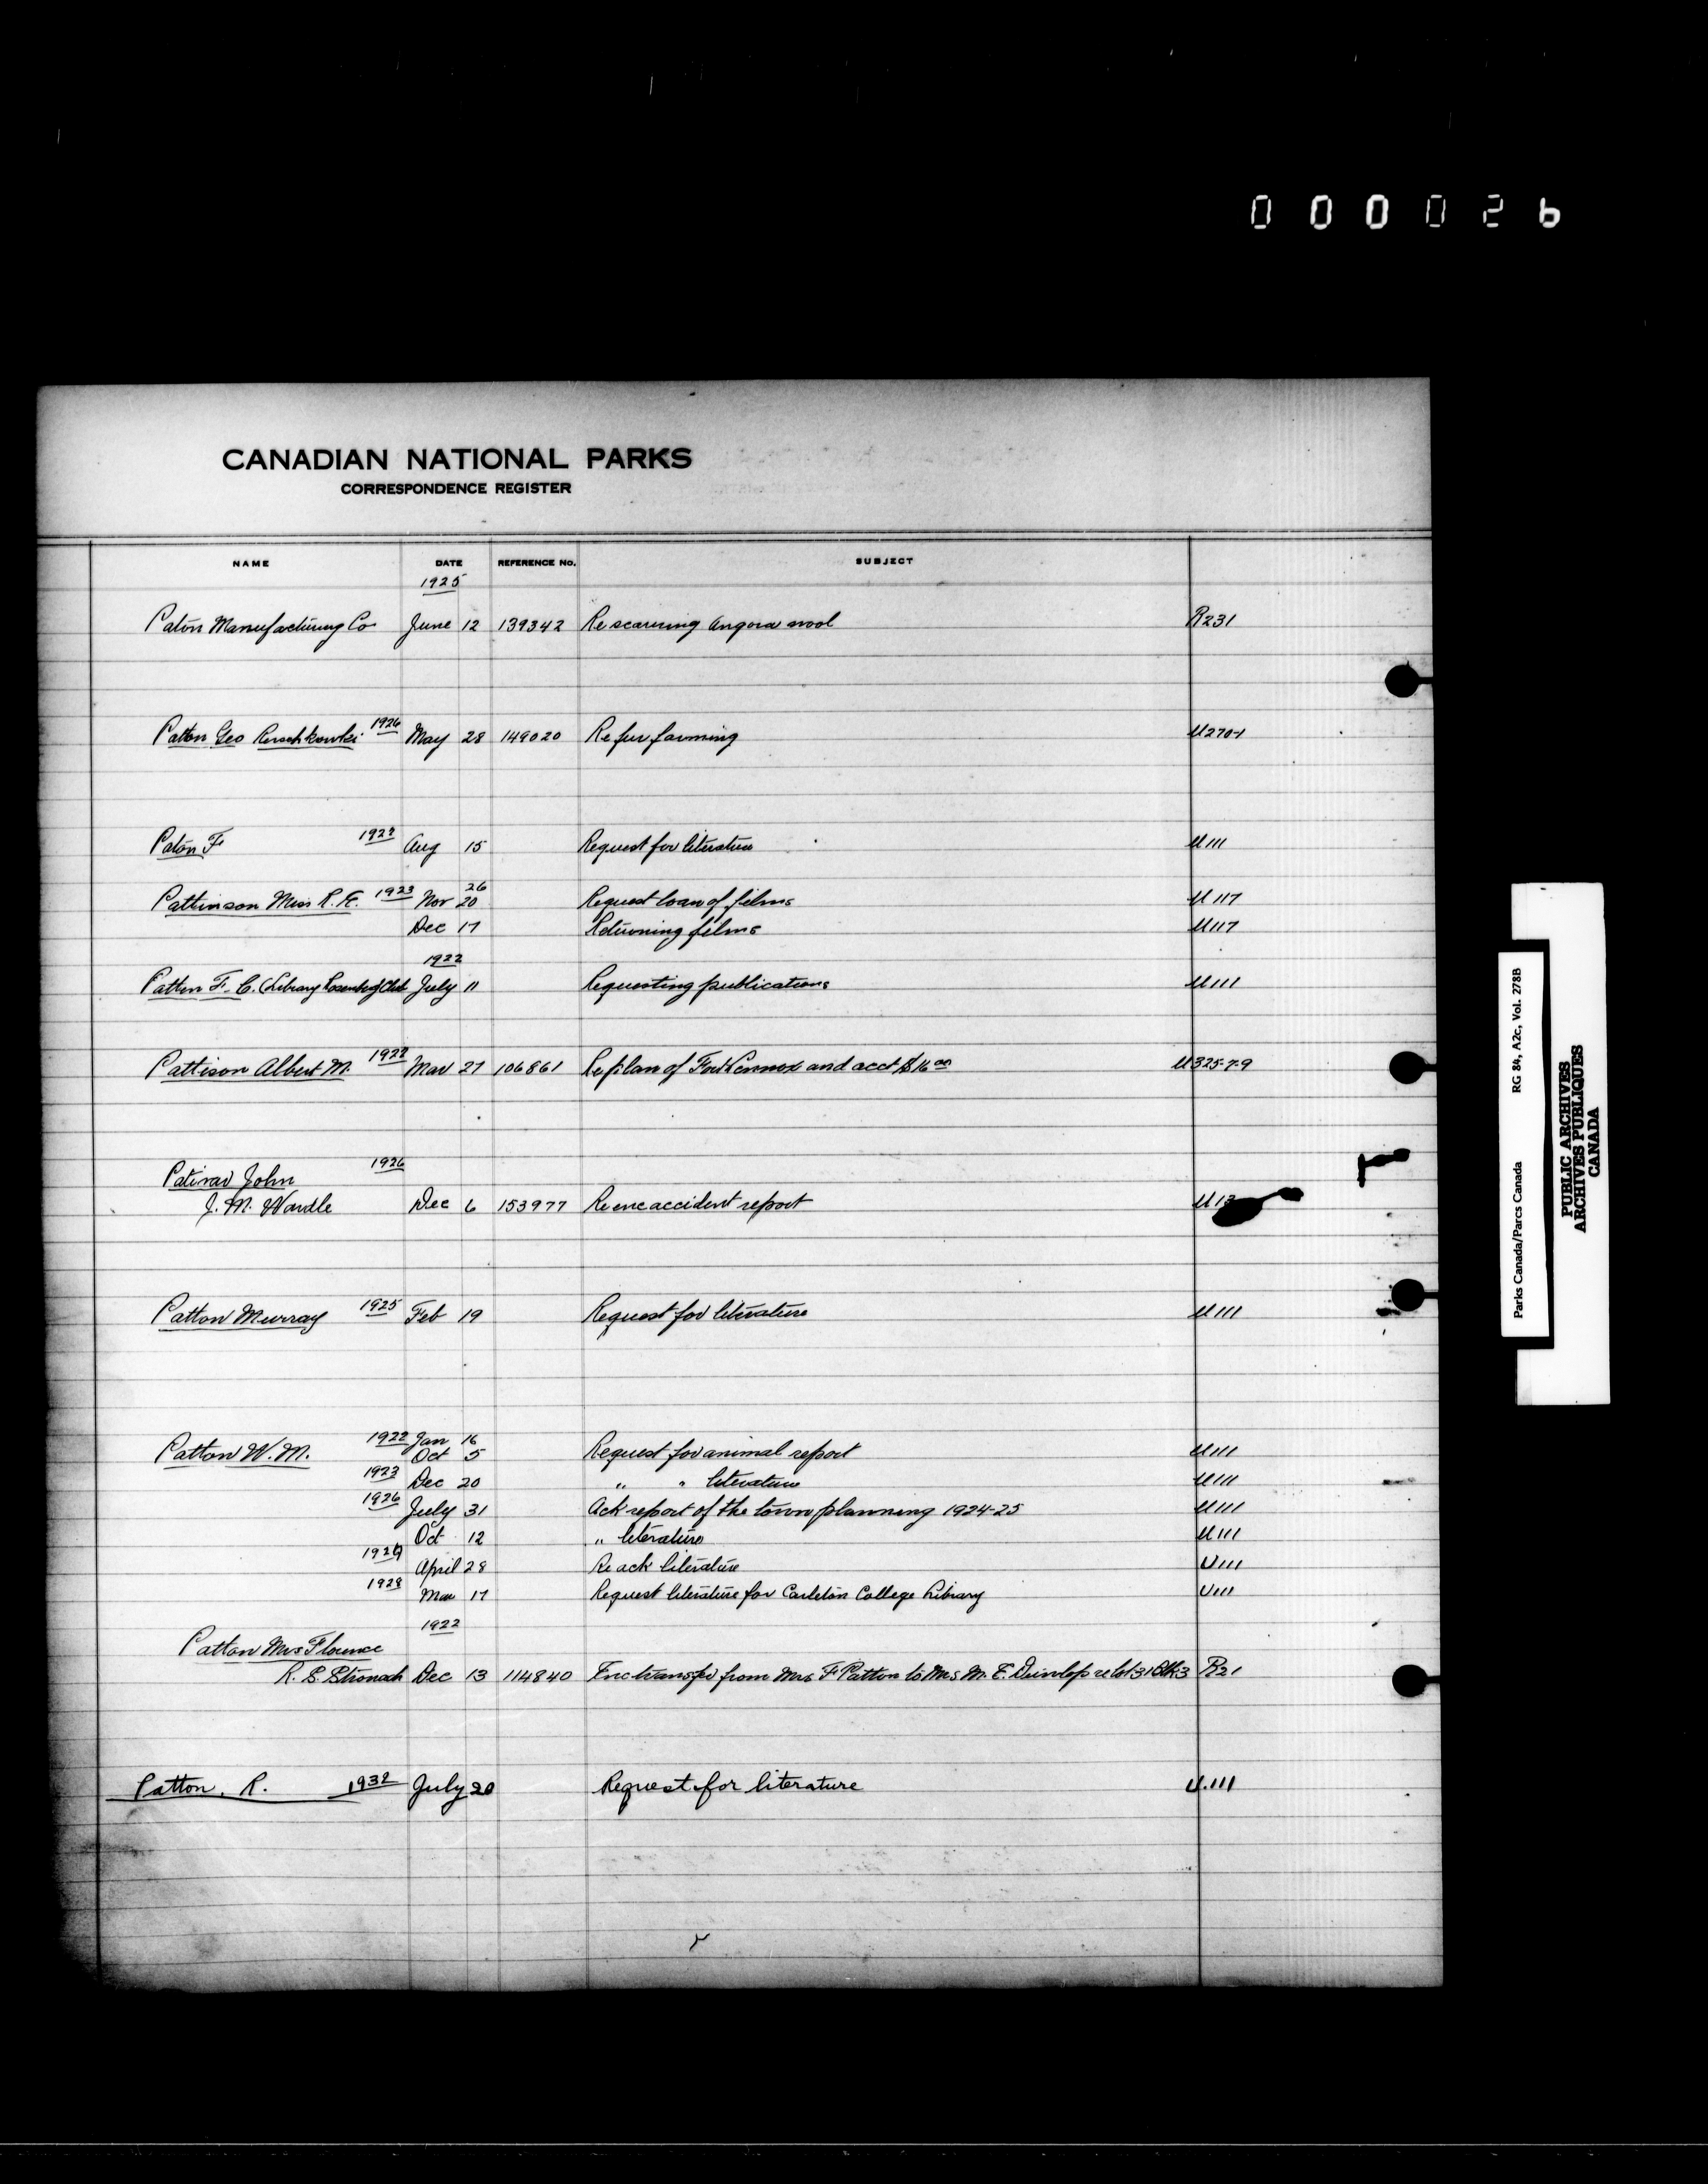 000026
CANADIAN NATIONAL PARKS
CORRESPONDENCE REGISTER
NAME DATE REFERENCE No. SUBJECT
1925
Paton Manufacturing Co June 12 139342 Re scouring angora wool R231
Patton Geo 1926 May 28 149020 Re fur farming U270-1
Paton F Aug 15 Request for literature U111
26
Pattinson Miss R. E. 1923 Nov 20 Request loan of films U117
Dec 17 Returning films U117
1922
Patten F. C. (Library Club July 11 Requesting publications U111
Pattison Albert M. 1922 Mar 27 106861 Re plan of Fort Lennox and acct $16.00 U325-7-9
1926
John
J. M. Wardle Dec 6 153977 Re enc accident report U13
Patton Murray 1925 Feb 19 Request for literature U111
1922 Jan 16
Patton W. M. Oct 5 Request for animal report U111
1923 Dec 20 " " literature U111
1926 July 31 Ack report of the town planning 1924-25 U111
Oct 12 " literature U111
1927 April 28 Re ack literature U111
1928 Mar 17 Request literature for Carleton College Library U111
1922
Patton Mrs Florence
R. S. Stronach Dec 13 114840 Enc transfer from Mrs F Patton to Mrs M. E. Dunlop re lot 31 Blk 3 R21
Patton, R. 1932 July 20 Request for literature U.111
Parks Canada/Parcs Canada RG 84, A2c, Vol. 278B
PUBLIC ARCHIVES
ARCHIVES PUBLIQUES
CANADA